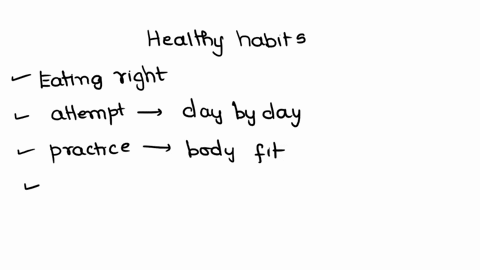 Healthy habits
✓ Eating right
✓ attempt → day by day
✓ practice → body fit
✓